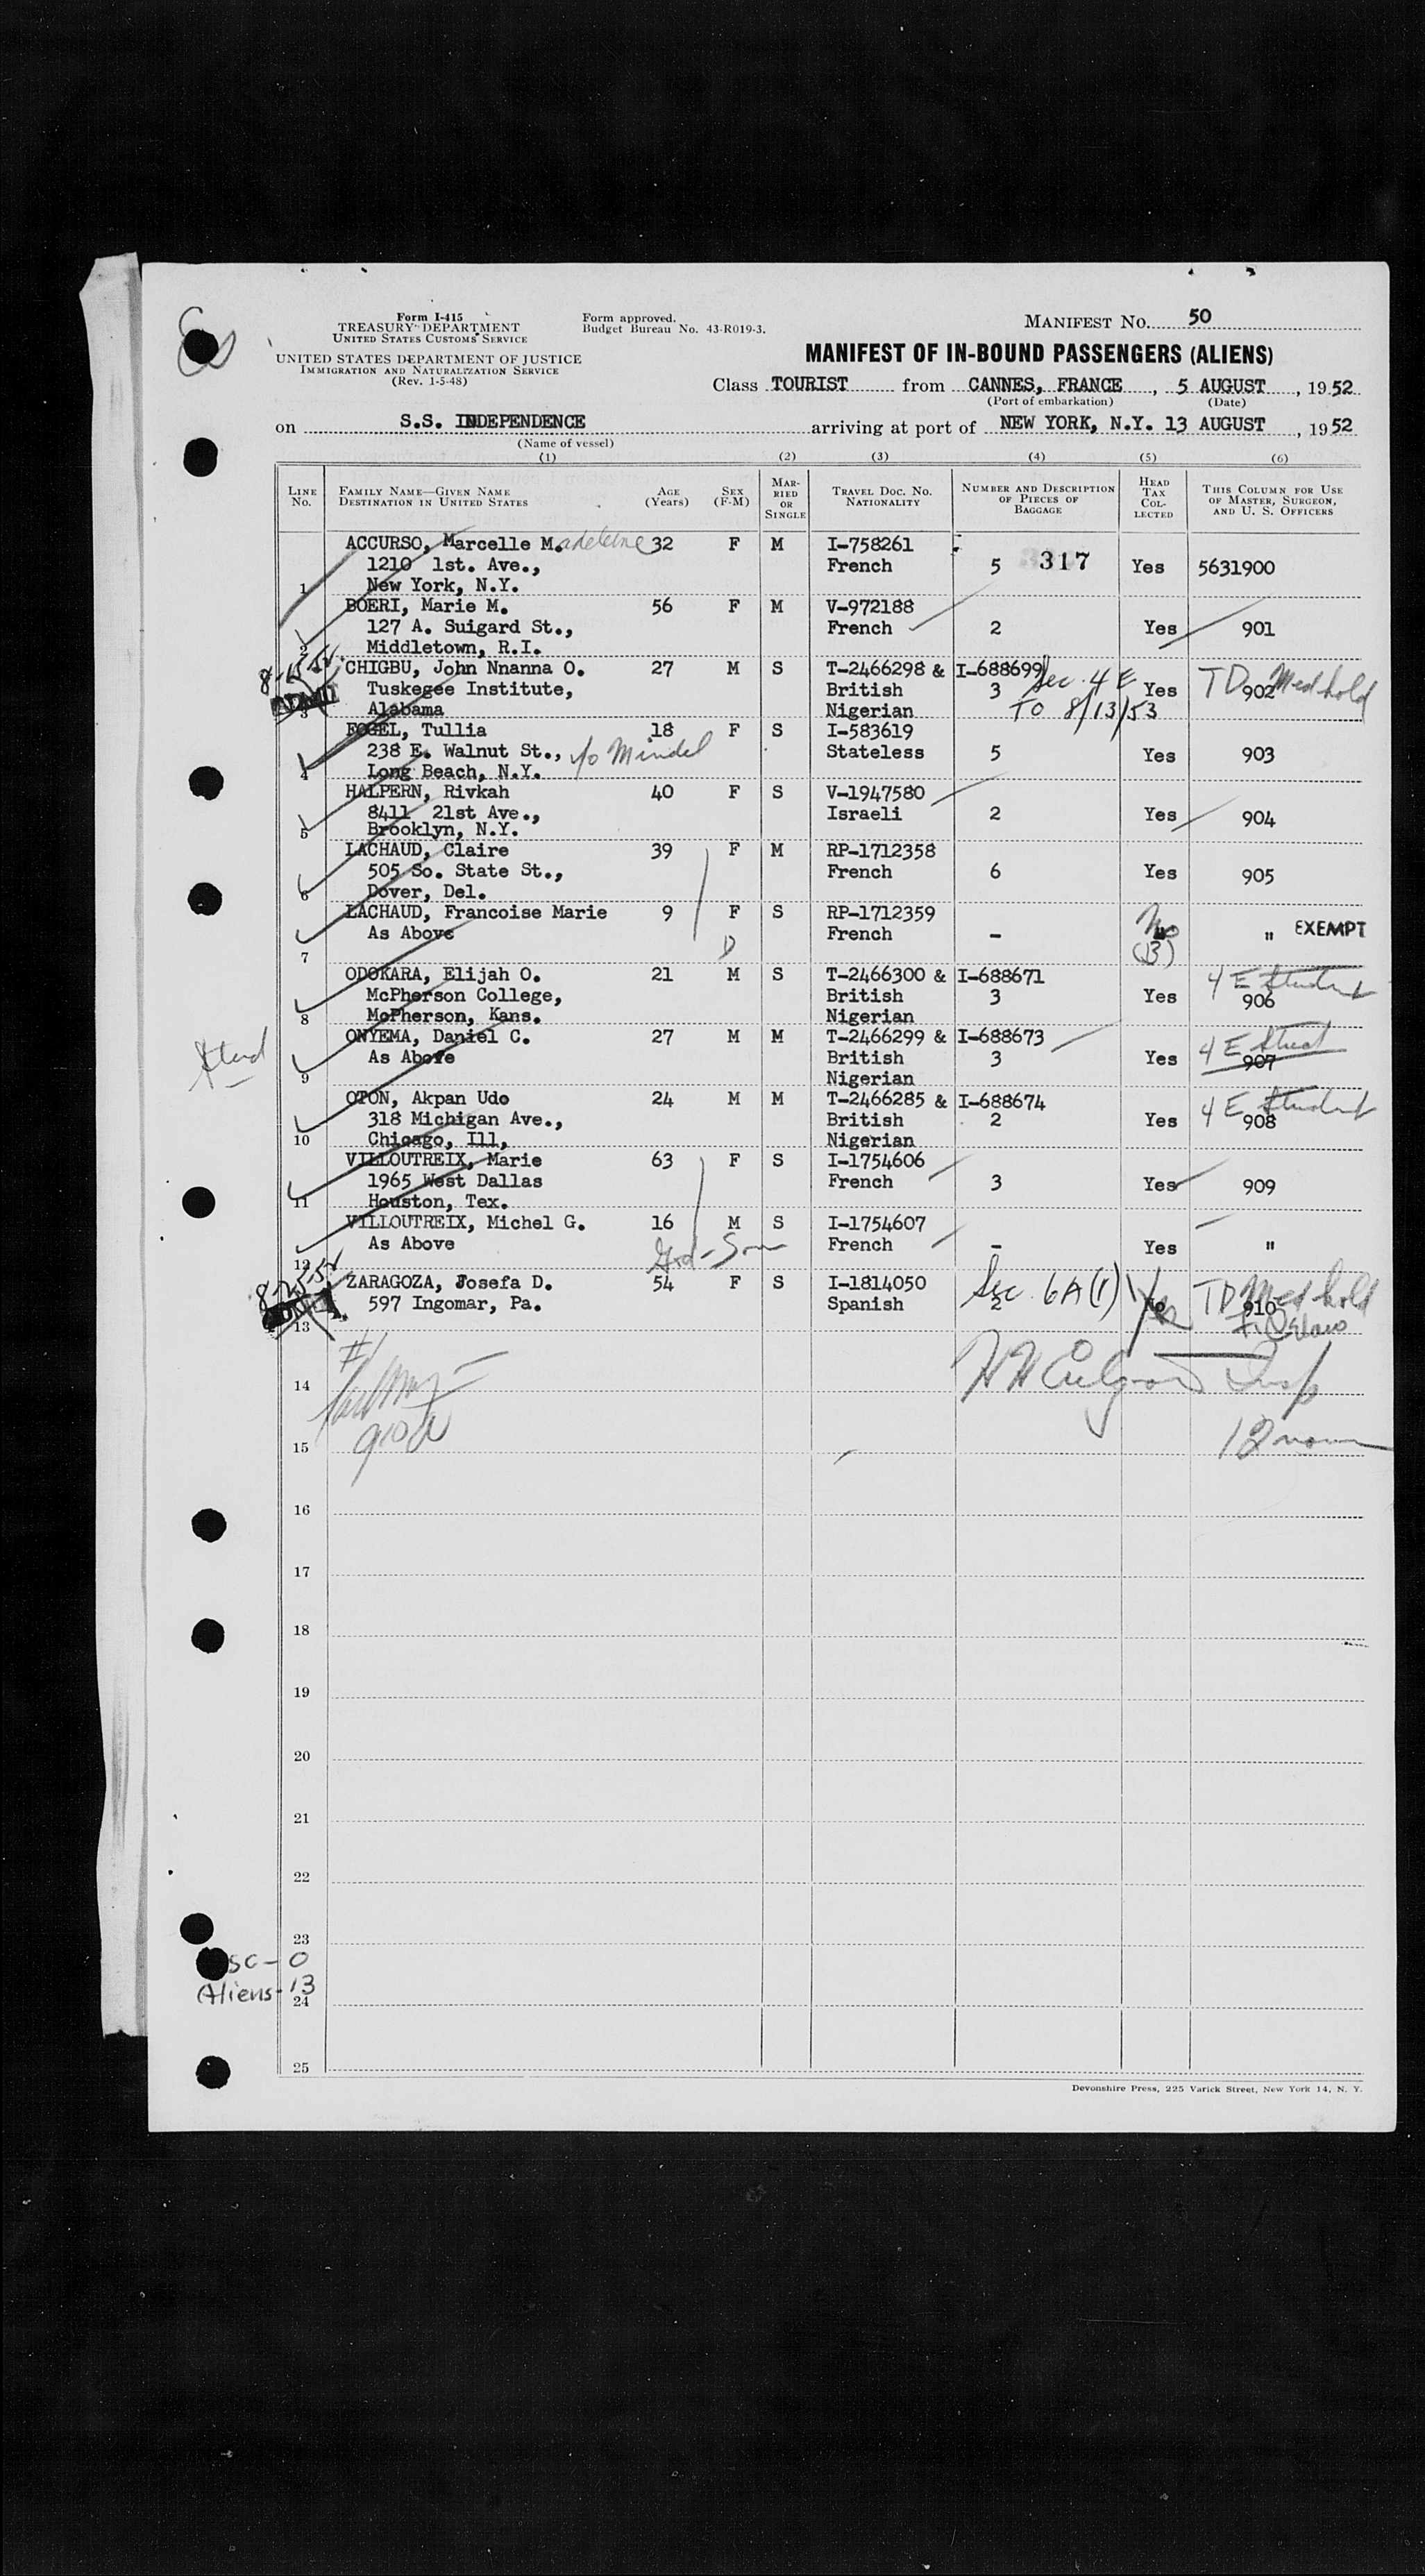 Form I-415
TREASURY DEPARTMENT
UNITED STATES CUSTOMS SERVICE
UNITED STATES DEPARTMENT OF JUSTICE
IMMIGRATION AND NATURALIZATION SERVICE
(Rev. 1-5-48)
Form approved.
Budget Bureau No. 43-R019-3.
MANIFEST NO. 50
MANIFEST OF IN-BOUND PASSENGERS (ALIENS)
Class TOURIST from CANNES, FRANCE, 5 AUGUST, 1952
(Port of embarkation) (Date)
on S.S. INDEPENDENCE arriving at port of NEW YORK, N.Y. 13 AUGUST, 1952
(Name of vessel)
(1) (2) (3) (4) (5) (6)
LINE NO. FAMILY NAME—GIVEN NAME DESTINATION IN UNITED STATES AGE (Years) SEX (F-M) MARRIED OR SINGLE TRAVEL DOC. NO. NATIONALITY NUMBER AND DESCRIPTION OF PIECES OF BAGGAGE HEAD TAX COLLECTED THIS COLUMN FOR USE OF MASTER, SURGEON, AND U. S. OFFICERS
ACCURSO, Marcelle M.adeleine 32 F M I-758261
1210 1st. Ave., French 5 317 Yes 5631900
1 New York, N.Y.
BOERI, Marie M. 56 F M V-972188
127 A. Suigard St., French 2 Yes 901
2 Middletown, R.I.
8-25-52 CHIGBU, John Nnanna O. 27 M S T-2466298 & I-688699 Sec. 4 E
Tuskegee Institute, British 3 Yes TD 902 Med hold
3 Alabama Nigerian TO 8/13/53
FOGEL, Tullia 18 F S I-583619
238 E. Walnut St., c/o Mindel Stateless 5 Yes 903
4 Long Beach, N.Y.
HALPERN, Rivkah 40 F S V-1947580
8411 21st Ave., Israeli 2 Yes 904
5 Brooklyn, N.Y.
LACHAUD, Claire 39 F M RP-1712358
505 So. State St., French 6 Yes 905
6 Dover, Del.
LACHAUD, Francoise Marie 9 F S RP-1712359 No
As Above D French - " " EXEMPT
7 (13)
ODOKARA, Elijah O. 21 M S T-2466300 & I-688671 4 E Student
McPherson College, British 3 Yes 906
8 McPherson, Kans. Nigerian
ONYEMA, Daniel C. 27 M M T-2466299 & I-688673 4 E Stud
Stud As Above British 3 Yes 907
9 Nigerian
OTON, Akpan Udo 24 M M T-2466285 & I-688674 4 E Student
318 Michigan Ave., British 2 Yes 908
10 Chicago, Ill, Nigerian
VILLOUTREIX, Marie 63 F S I-1754606
1965 West Dallas French 3 Yes 909
11 Houston, Tex.
VILLOUTREIX, Michel G. 16 M S I-1754607
As Above Grd-Son French - Yes "
12
8-25-52 ZARAGOZA, Josefa D. 54 F S I-1814050 Sec. 6A(1) Yes TD Med hold
597 Ingomar, Pa. Spanish 2 No 910
13
14 Insp
good
15 12 noon
16
17
18
19
20
21
22
23
USC-0
Aliens-13
24
25
Devonshire Press, 225 Varick Street, New York 14, N. Y.